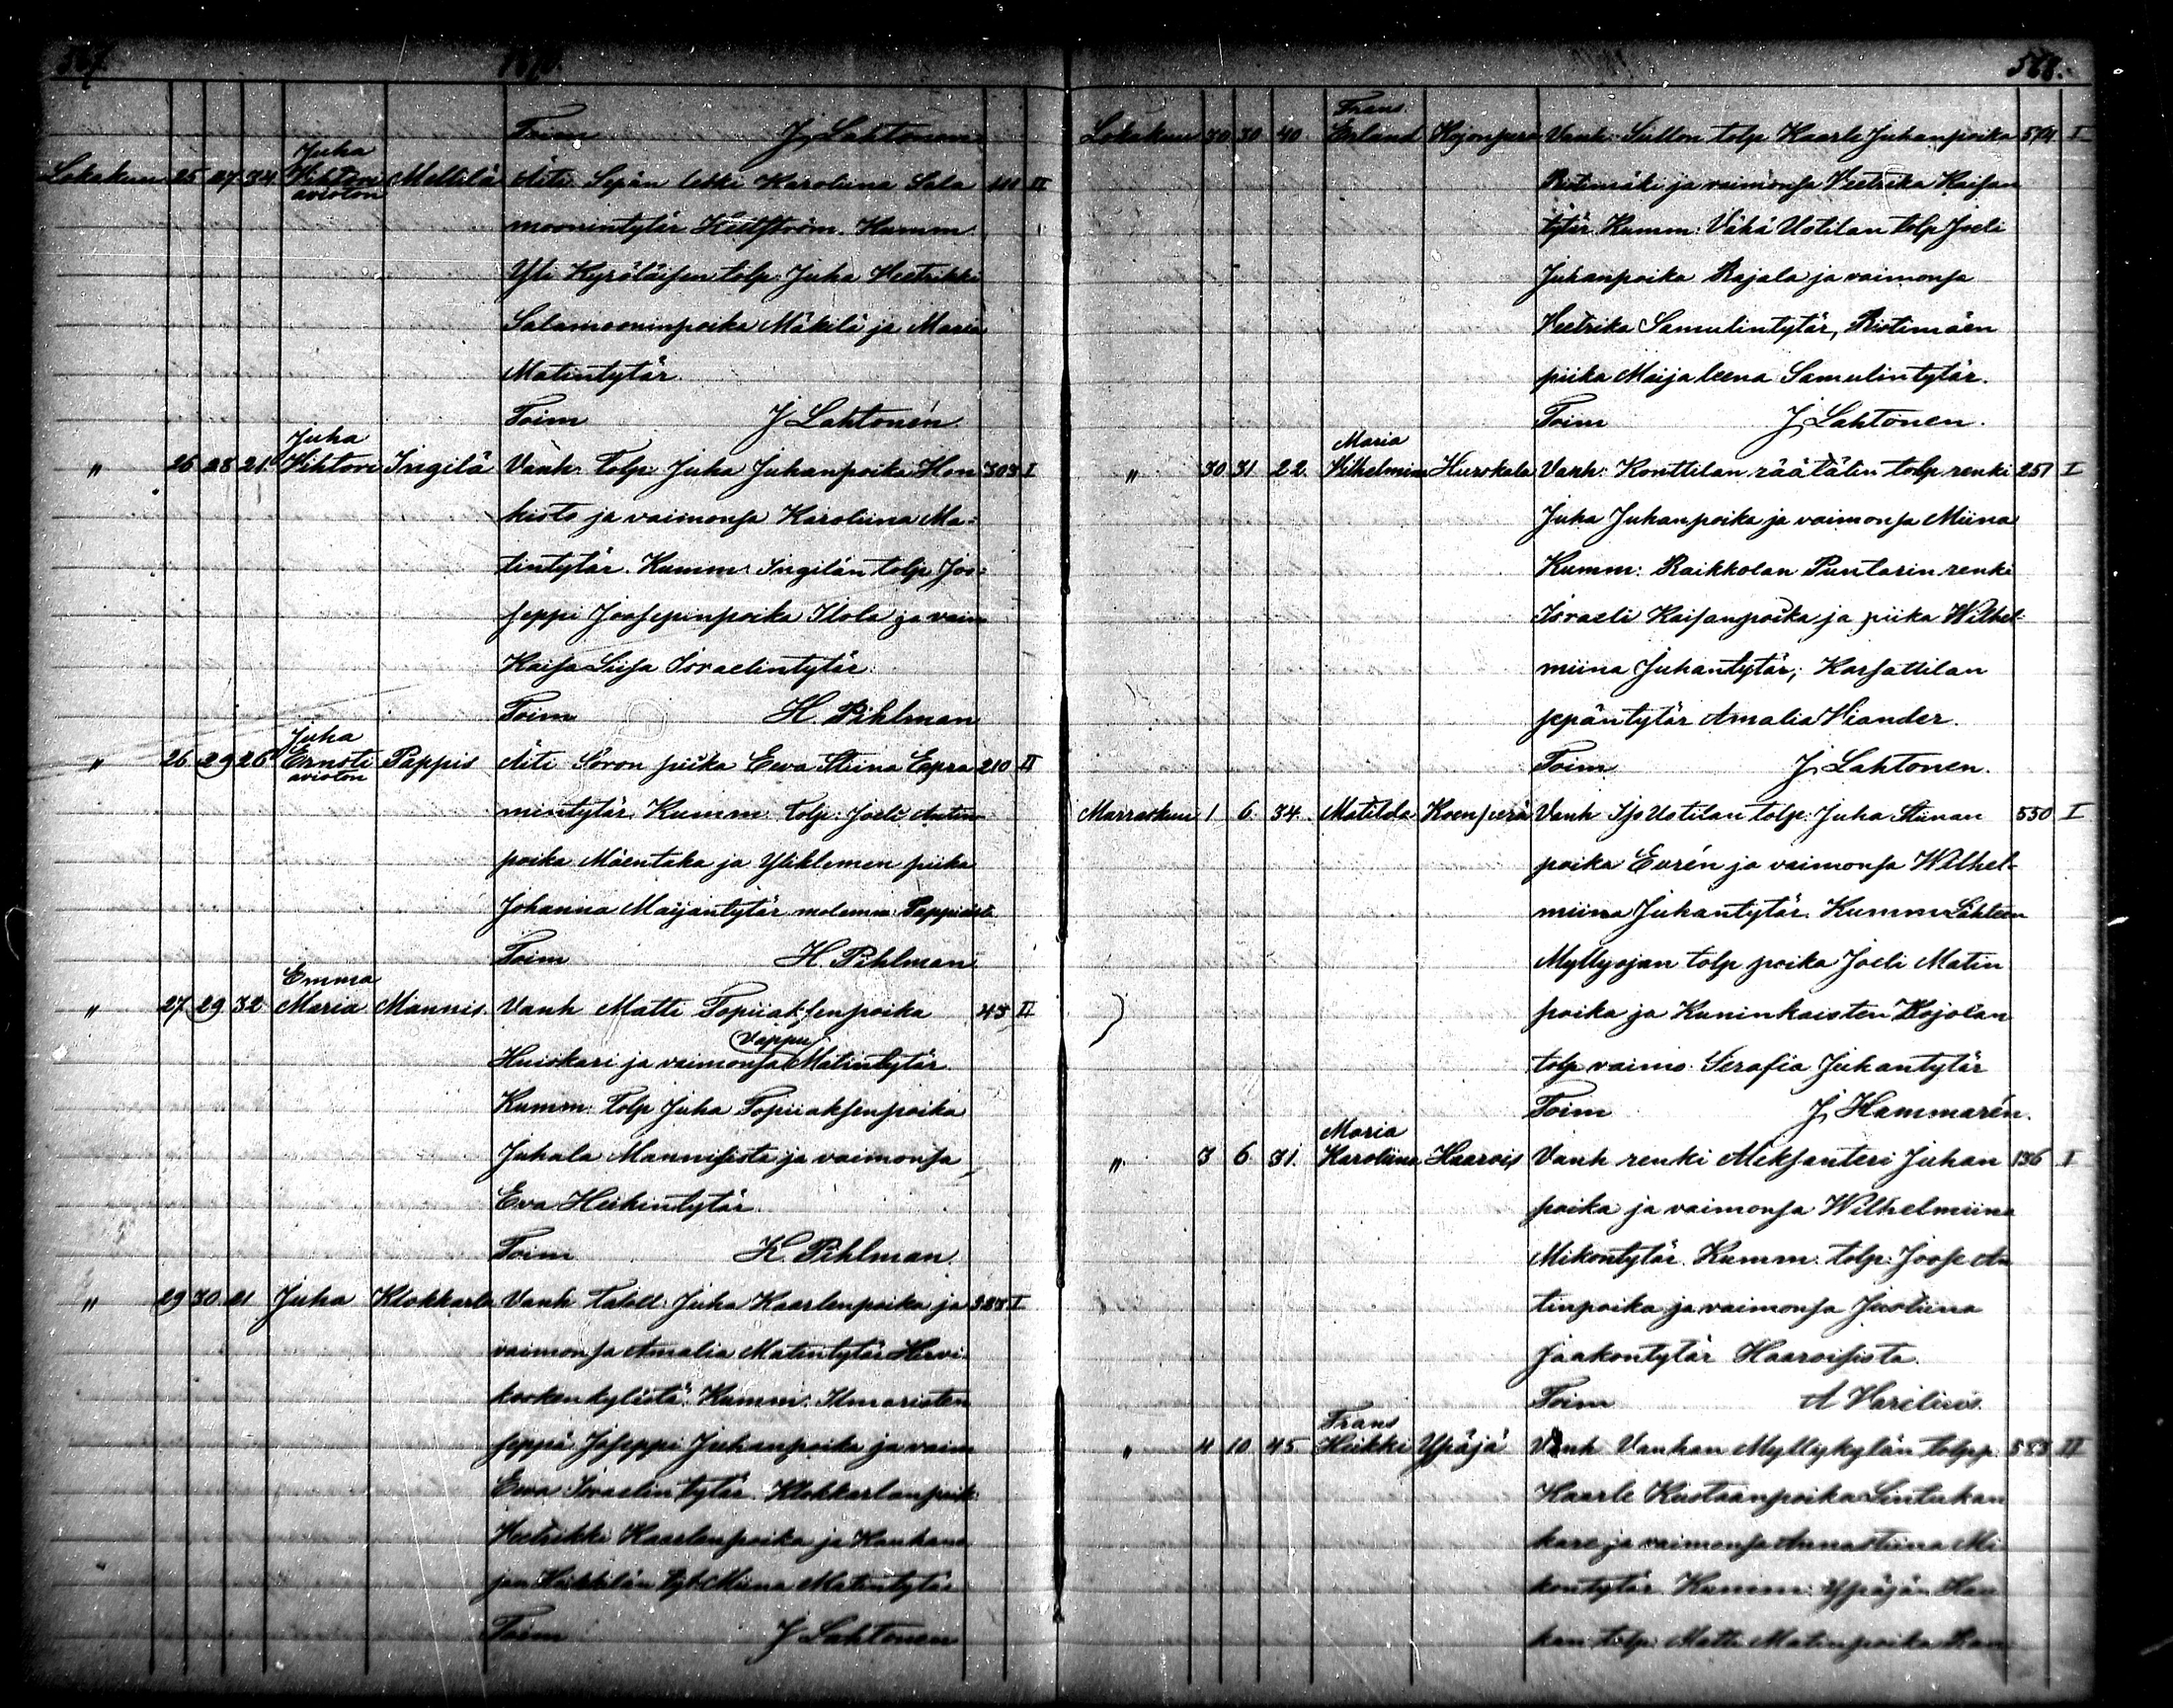 567.
1870.
Toim J. Lahtonen
Juha
Lokakuu 25 27 34 Wihtori Mellilä Äiti Sepän leski Karoliina Sala 411 II
avioton
moonintytär Kellström. Kumm
Yli Kyröläisen tolp. Juha Heetrikki
Salamooninpoika Mäkilä ja Maria
Matintytär.
Toim J. Lahtonen
Juha
" 26 28 21 Wihtori Ingilä Vanh. Tolp. Juha Juhanpoika Hon 303 I
kisto ja vaimonsa Karoliina Ma-
tintytär. Kumm: Ingilän tolp. Joo-
seppi Joosepinpoika Ilola ja vaim
Kaisa Liisa Israelintytär
Toim H. Pihlman
Juha
" 26 29 26 Ernsti Pappis Äiti Soron piika Eeva Stiina Epra 210 II
avioton
mintytär. Kumm: tolp. Joeli Antin
poika Mäentaka ja Yliklemen piika
Johanna Maijantytär molemm. Pappisista
Toim H. Pihlman
Emma
" 27 29 32 Maria Mannis. Vanh Matti Topiiaksenpoika 43 II
Vappu
Huiskari ja vaimonsa Matintytär.
Kumm: Tolp Juha Topiiaksenpoika
Juhala Mannisista ja vaimonsa
Eva Heikintytär
Toim H. Pihlman.
" 29 30 21 Juha Klokkarla Vanh Taloll. Juha Kaarlenpoika ja 323 I
vaimonsa Amalia Matintytär Hirvi-
kosken kylästä. Kumm. Ilmaristen
seppä Joseppi Juhanpoika ja vaim
Eeva Israelintytär. Klokkarlan poik.
Heetrikki Kaarlenpoika ja Kauhano
jan Heikkilän tyt. Miina Matintytär
Toim J Lahtonen
568.
Frans
Lokakuu 30 30 40 Erland Kojonperä Vanh: Sullon tolp Kaarle Juhanpoika 571 I
Ristimäki ja vaimonsa Heetrika Kaisan
tytär. Kumm: Vähä Uotilan tolp Joeli
Juhanpoika Rajala ja vaimonsa
Heetrika Samulintytär, Ristimäen
piika Maija leena Samulintytär.
Toim J. Lahtonen.
Maria
" 30 31 22. Wilhelmina Hurskala Vanh: Konttilan räätälin tolp renki 251 I
Juha Juhanpoika ja vaimonsa Miina
Kumm: Raikkolan Puntarin renki
Israeli Kaisanpoika ja piika Wilhel-
miina Juhantytär; Karsattilan
sepäntytär Amalia Viander.
Toim J. Lahtonen.
Marraskuu 1 6 34. Matilda Koenperä Vanh Iso Uotilan tolp. Juha Stiinan 550 I
poika Evrén ja vaimonsa Wilhel-
miina Juhantytär. Kumm Lähteen
Myllyojan tolp poika Joeli Matin
poika ja Kuninkaisten Kojolan
tolp vaimo Serafia Juhantytär
Toim J. Hammarén.
Maria
" 3 6 31. Karoliina Haarois Vanh renki Aleksanteri Juhan 136 I
poika ja vaimonsa Wilhelmiina
Mikontytär. Kumm. tolp. Joose An
tinpoika ja vaimonsa Justiina
Jaakontytär Haaroisista.
Toim A Varelius.
Frans
" 4 10 45 Heikki Ypäjä Vanh Vanhan Myllykylän tolpp. 553 II
Kaarle Kustaanpoika Lintukan
kare ja vaimonsa Annastiina Mi
kontytär. Kumm: Ypäjän Kau
kan tolp. Matti Matinpoika